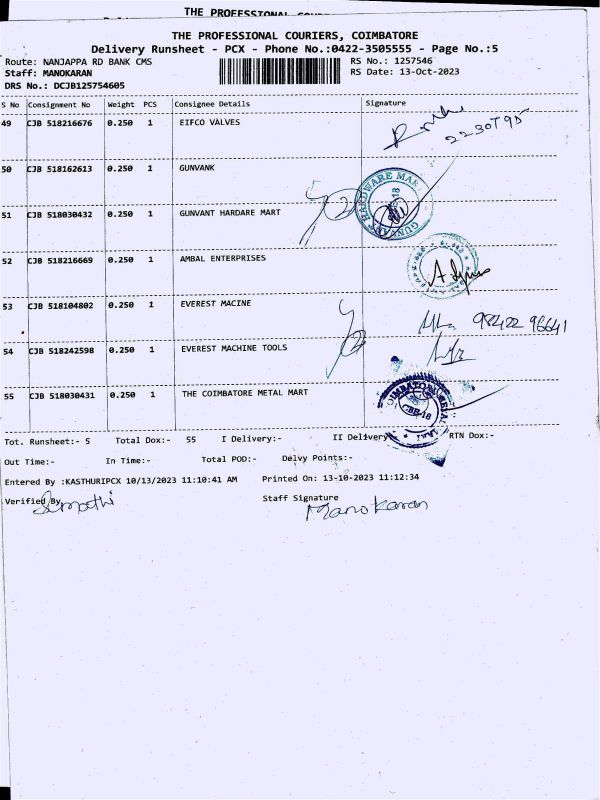 THE PROFESSIONAL COURIERS, COIMBATORE
Delivery Runsheet - PCX - Phone No.:0422-3505555 - Page No.:5
Route: NANJAPPA RD BANK CMS RS No.: 1257546
Staff: MANOKARAN RS Date: 13-Oct-2023
DRS No.: DCJB125754605
S No Consignment No Weight PCS Consignee Details Signature
49 CJB 518216676 0.250 1 EIFCO VALVES
50 CJB 518162613 0.250 1 GUNVANK
51 CJB 518030432 0.250 1 GUNVANT HARDARE MART
52 CJB 518216669 0.250 1 AMBAL ENTERPRISES
53 CJB 518104802 0.250 1 EVEREST MACINE
98422 96641
54 CJB 518242598 0.250 1 EVEREST MACHINE TOOLS
55 CJB 518030431 0.250 1 THE COIMBATORE METAL MART
Tot. Runsheet:- 5 Total Dox:- 55 I Delivery:- II Delivery RTN Dox:-
Out Time:- In Time:- Total POD:- Delvy Points:-
Entered By :KASTHURIPCX 10/13/2023 11:10:41 AM Printed On: 13-10-2023 11:12:34
Verified By Staff Signature
Manokaran